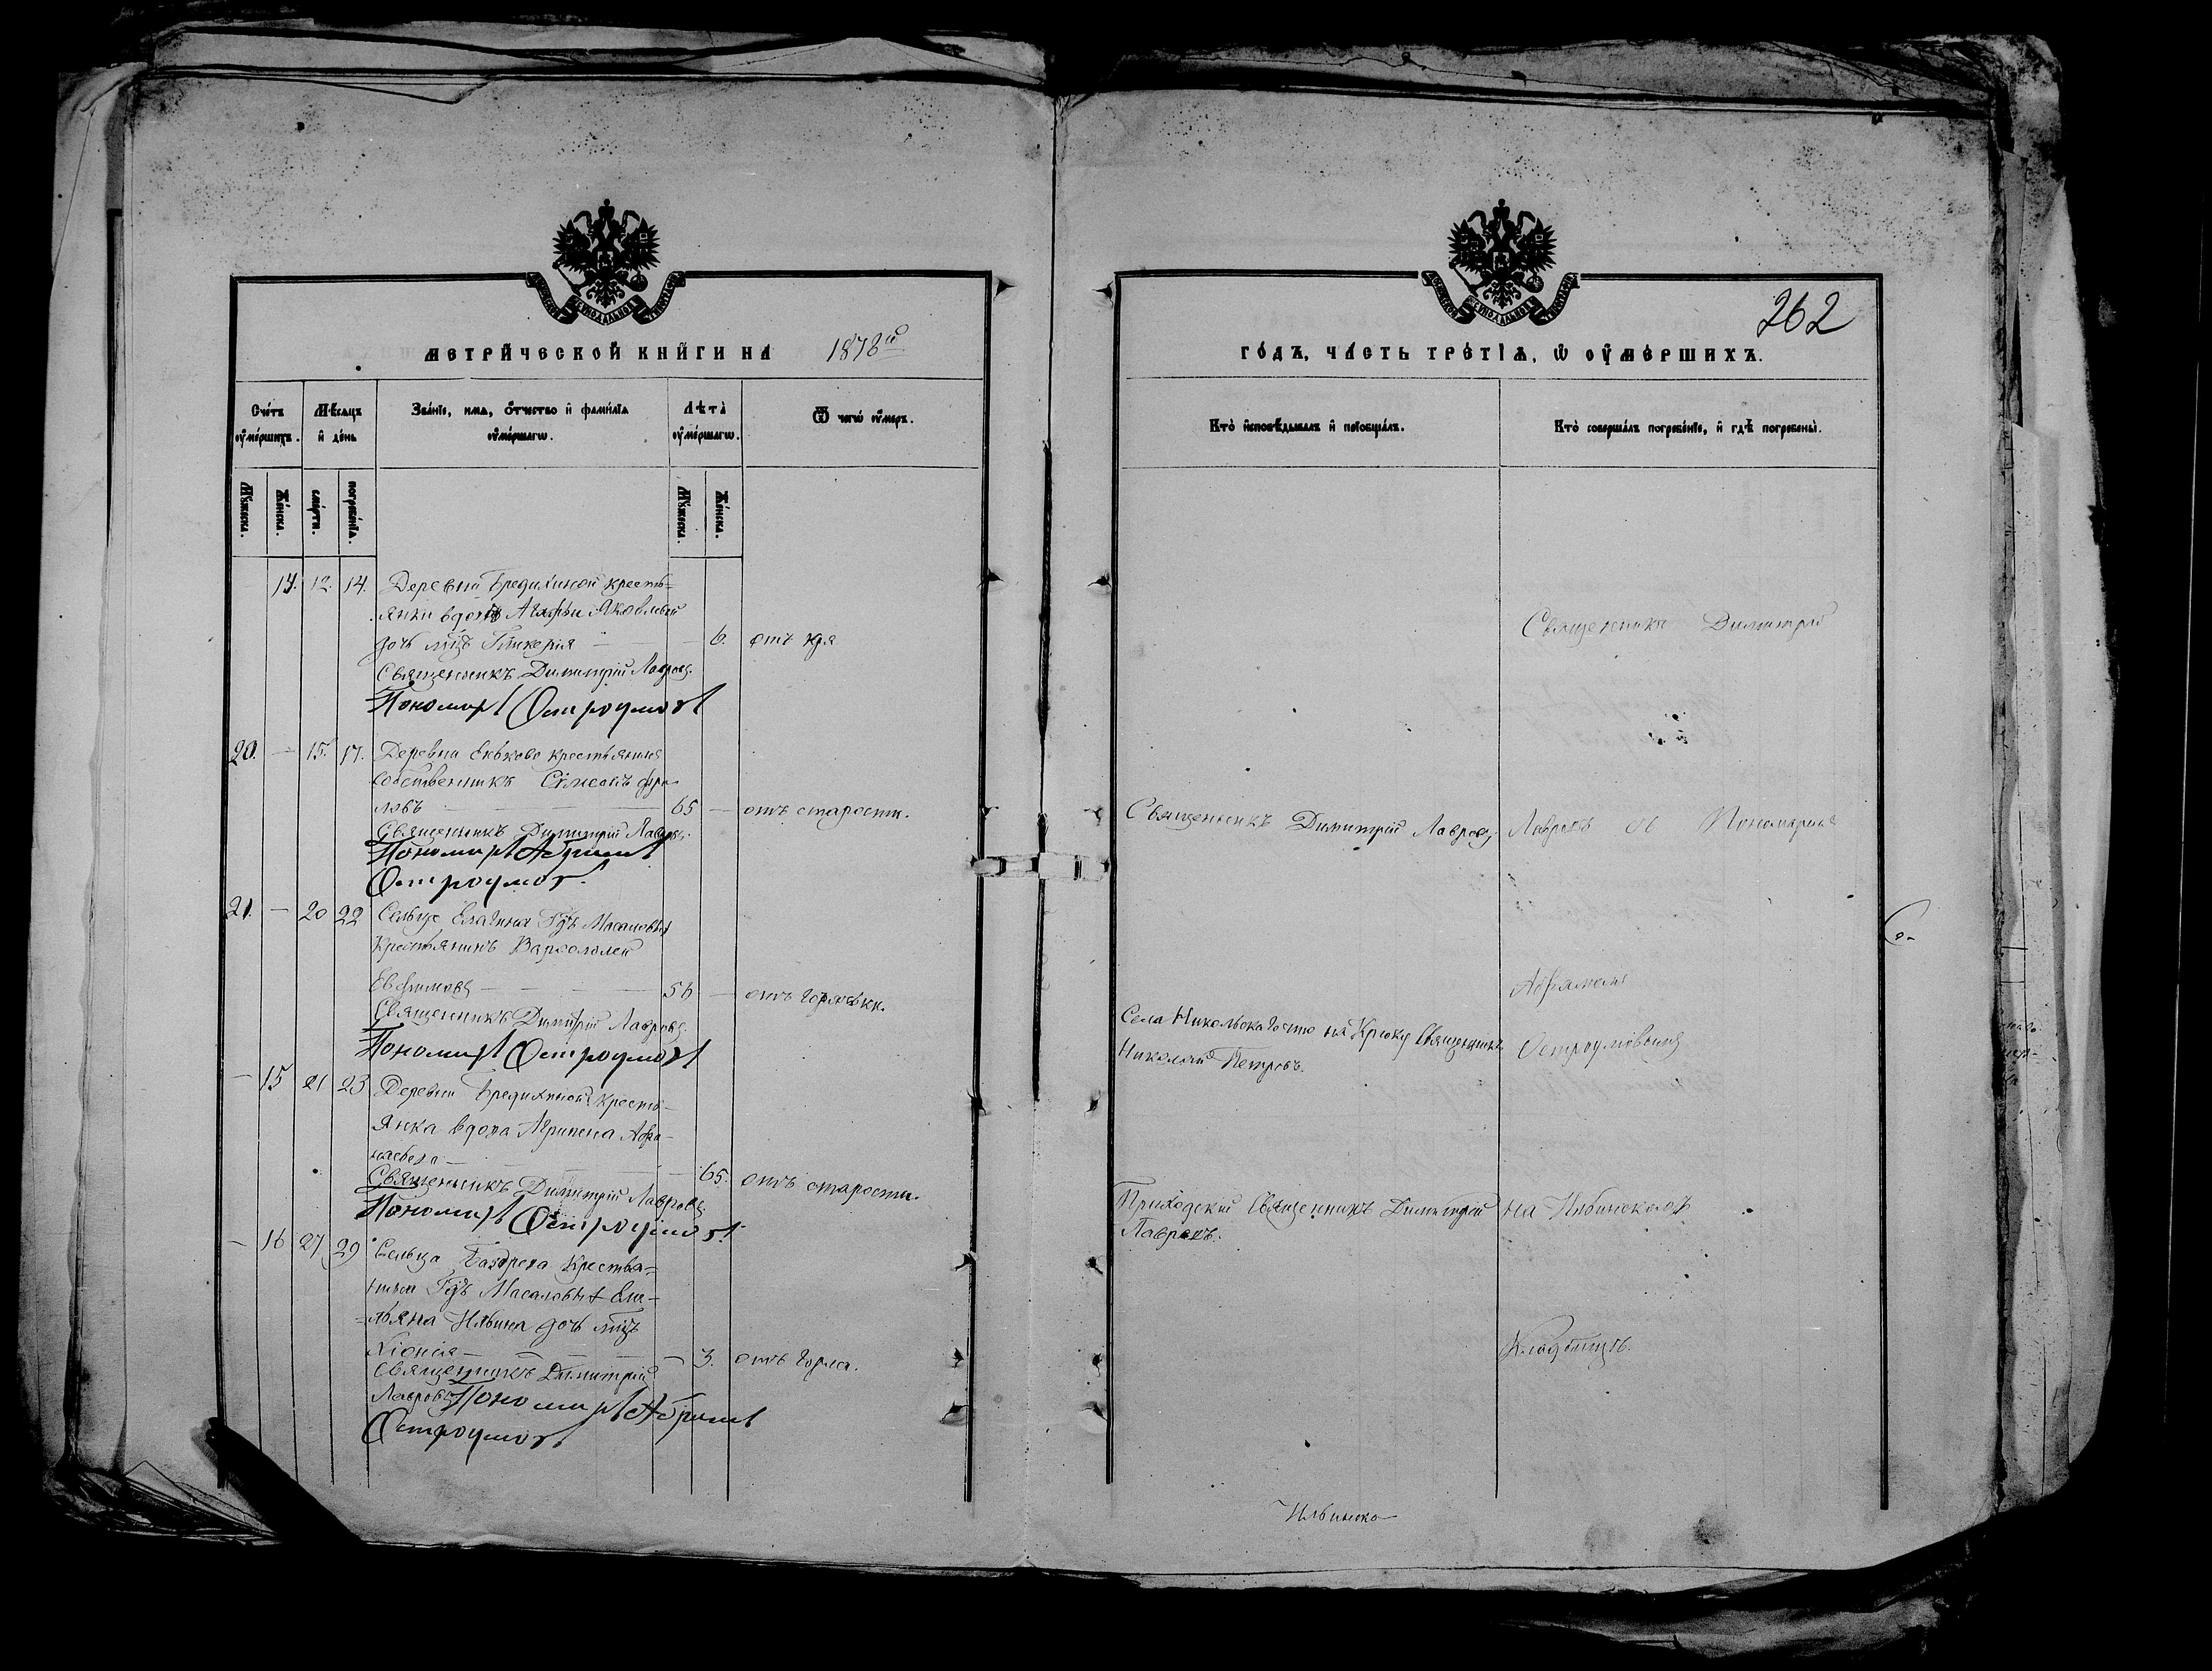 МЕТРИЧЕСКОЙ КНИГИ НА 1878й
Счетъ умершихъ.
Мѣсяцъ и день
Званіе, имя, отчество и фамилія умершагѡ.
Лѣта умершагѡ.
Ѿ чегѡ умеръ.
Мужеска.
Женска.
смерти.
погребенія.
Мужеска.
Женска.
14. 12. 14. Деревни Бредихиной кресть=
янки вдовы Агафьи Яковлевой
дочь Гликерія — — 6.
Священникъ Димитрій Лавровъ.
Пономарь Остроумовъ
20. — 15. 17. Деревна крестьянинъ
собственникъ Сѵмеонъ Фро
ловъ — 65 — отъ старости.
Священникъ Димитрій Лавровъ.
Пономарь Абрамъ
Остроумовъ.
21. — 20 22 Сельца Елагина Гдъ Масаловыхъ
Крестьянинъ Варѳоломей
Евфимовъ — 56 — отъ горячки.
Священникъ Димитрій Лавровъ.
Пономарь Остроумовъ
— 15 21 23 Деревни Бредихиной кресть-
янка вдова Агрипена Афа-
насьева — — 65. отъ старости.
Священникъ Димитрій Лавровъ.
Пономарь Остроумовъ.
— 16 27 29 Сельца Крестья=
нина Гдъ Масаловыхъ Еме-
=льяна Ильина дочь
Хіонія — — 3. отъ горла.
Священникъ Димитрій
Лавровъ Пономарь Абрамъ
Остроумовъ
262
ГОДЪ, ЧАСТЬ ТРЕТІЯ, Ѡ УМЕРШИХЪ.
Кто исповѣдывалъ и пріобщалъ.
Кто совершалъ погребеніе, и гдѣ погребены.
Священникъ Димитрій
Священникъ Димитрій Лавровъ.
Лавровъ съ Пономаремъ
Абрамомъ
Села Никольскаго что на Крюку Священникъ
Николай Петровъ.
Остроумовымъ
Приходскій Священникъ Димитрій
Лавровъ.
на Ильинскомъ
Кладбищѣ.
Ильинско